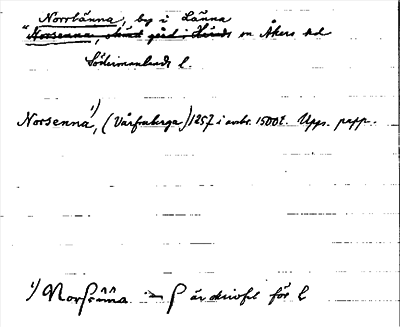 Norrlänna, by i Länna
"Norsenna, okänd gård i Länna sn Åkers hd
Södermanlands l.
Norsenna¹⁾, (Vårfruberga) 1257 i avskr. 1500t. Upps. papp.
¹⁾ Norſenna – ſ är skrivfel för l